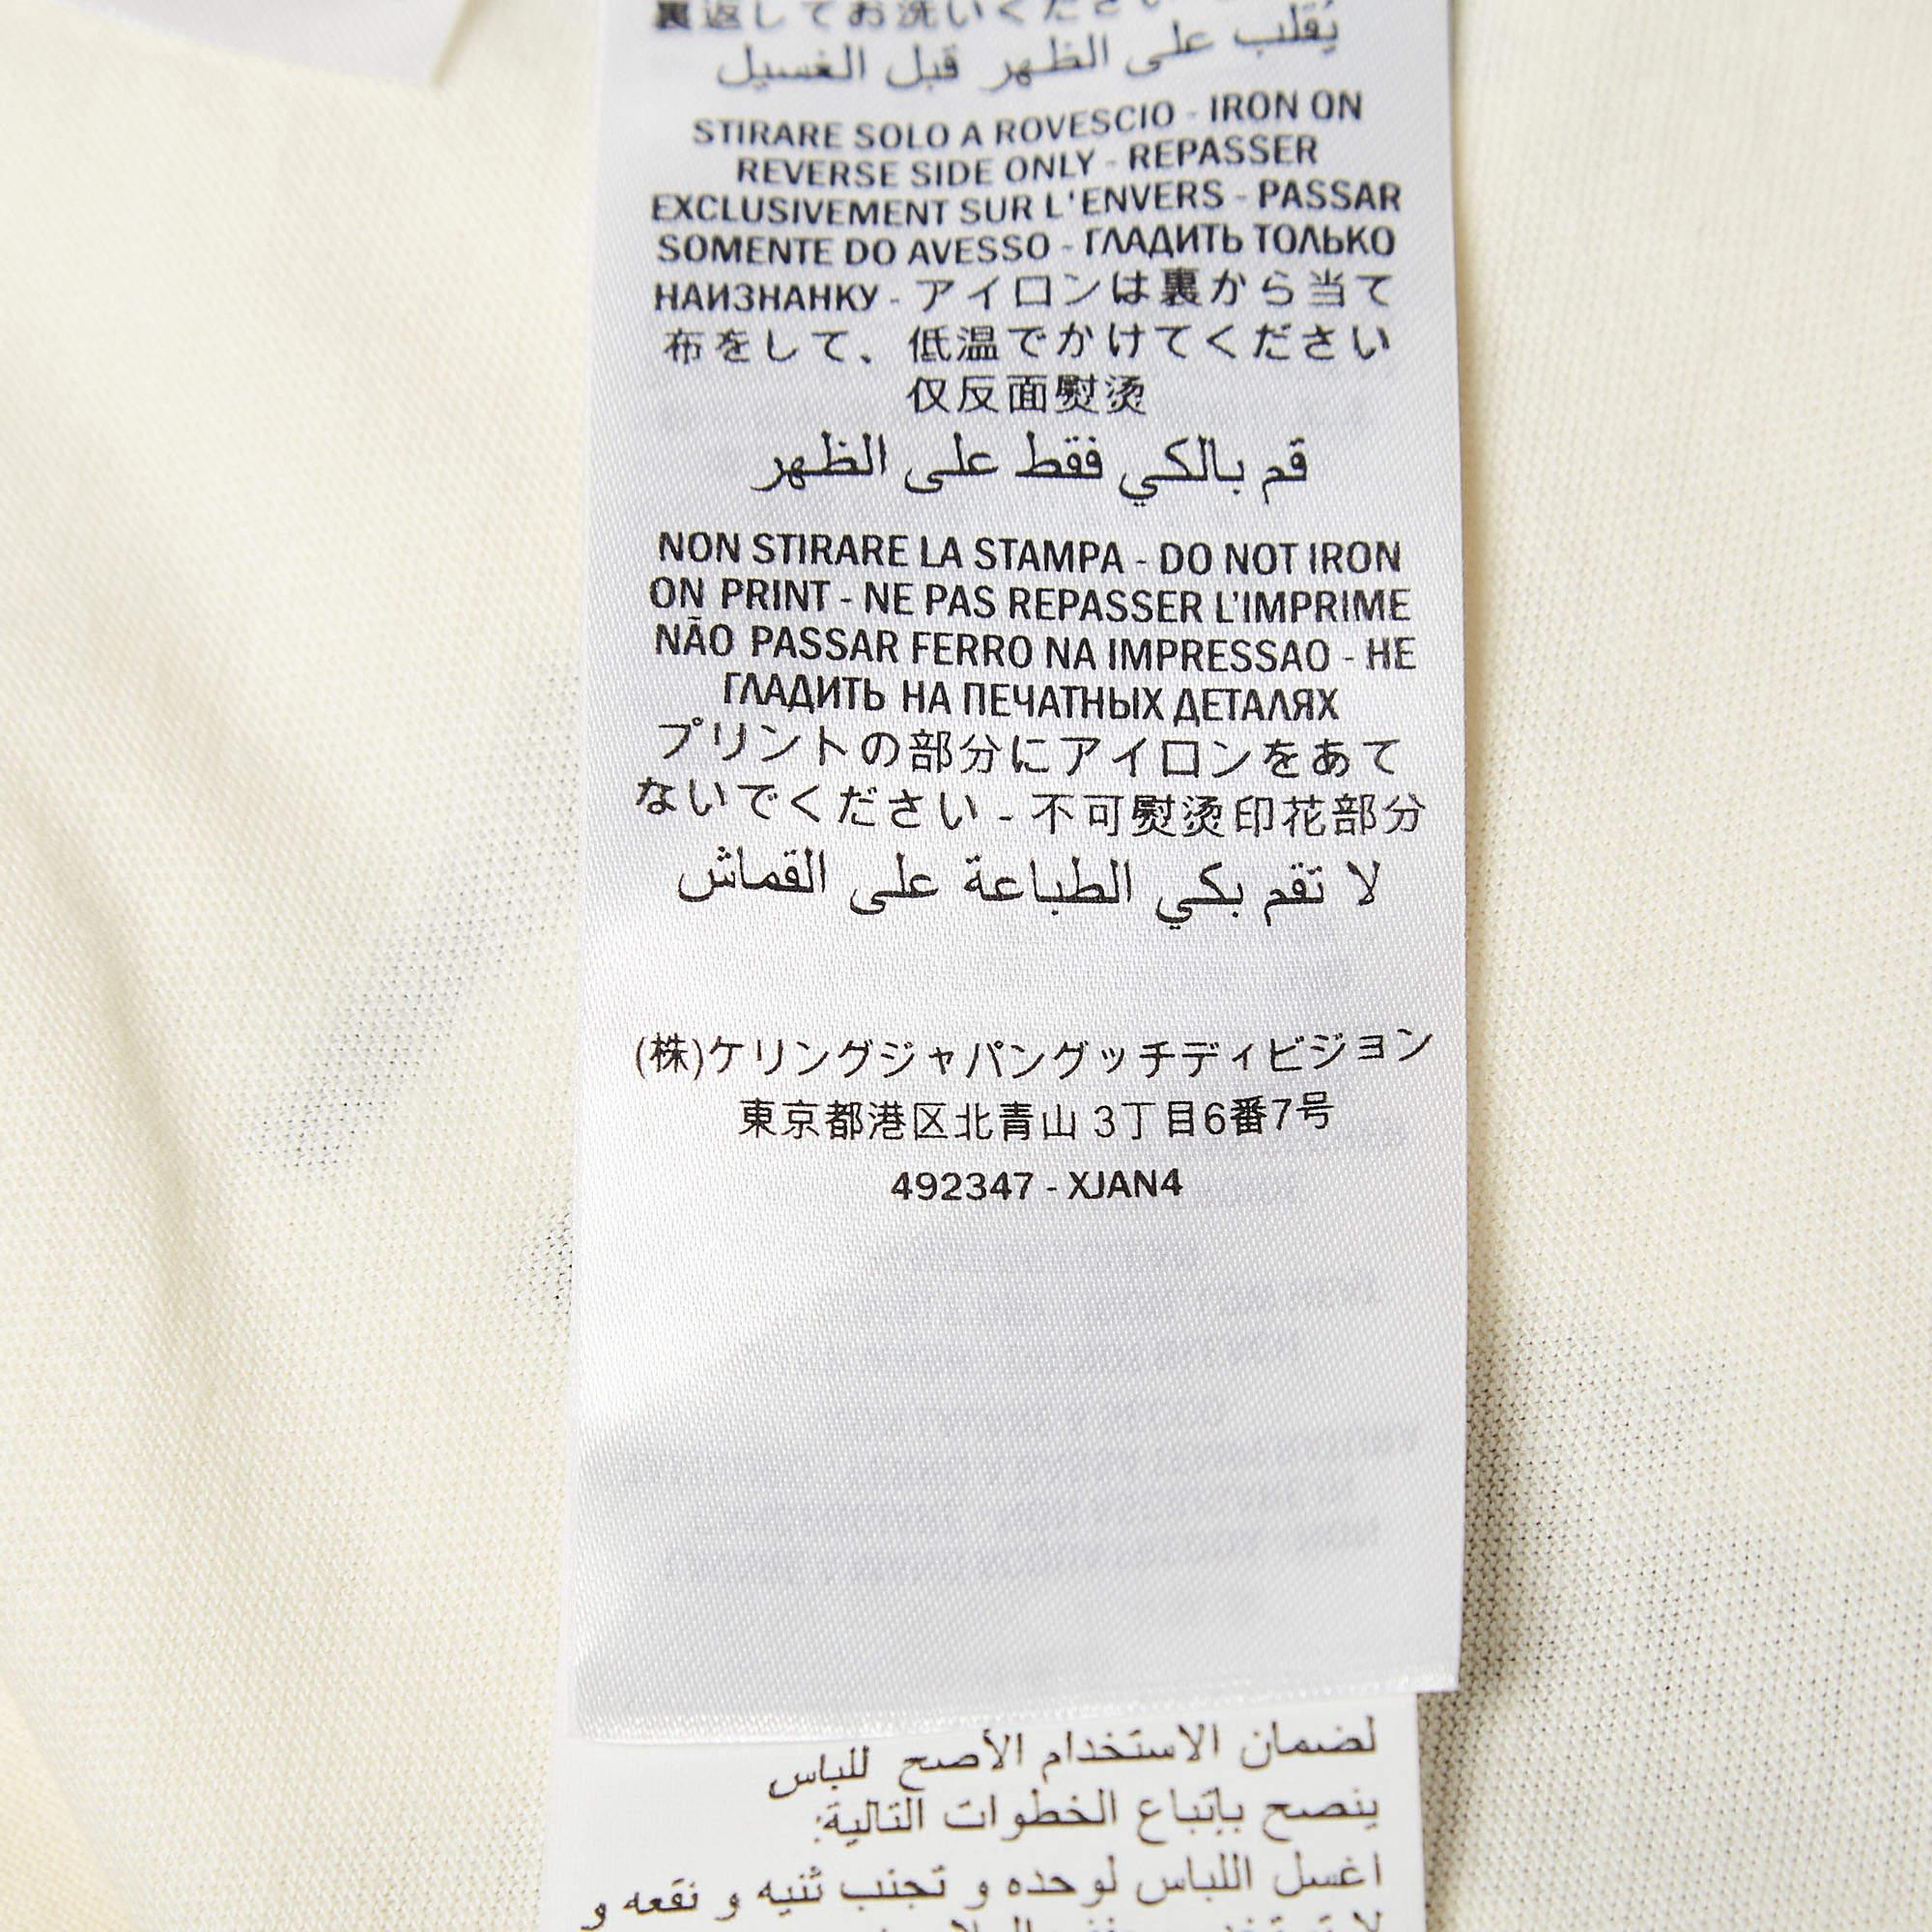 裏返してお洗いください
يُقلب على الظهر قبل الغسيل
STIRARE SOLO A ROVESCIO - IRON ON
REVERSE SIDE ONLY - REPASSER
EXCLUSIVEMENT SUR L'ENVERS - PASSAR
SOMENTE DO AVESSO - ГЛАДИТЬ ТОЛЬКО
НАИЗНАНКУ - アイロンは裏から当て
布をして、低温でかけてください
仅反面熨烫
قم بالكي فقط على الظهر
NON STIRARE LA STAMPA - DO NOT IRON
ON PRINT - NE PAS REPASSER L'IMPRIME
NÃO PASSAR FERRO NA IMPRESSAO - НЕ
ГЛАДИТЬ НА ПЕЧАТНЫХ ДЕТАЛЯХ
プリントの部分にアイロンをあて
ないでください - 不可熨烫印花部分
لا تقم بكي الطباعة على القماش
(株)ケリングジャパングッチディビジョン
東京都港区北青山 3丁目6番7号
492347 - XJAN4
لضمان الاستخدام الأصح للباس
ينصح بإتباع الخطوات التالية:
اغسل اللباس لوحده و تجنب ثنيه و نقعه و